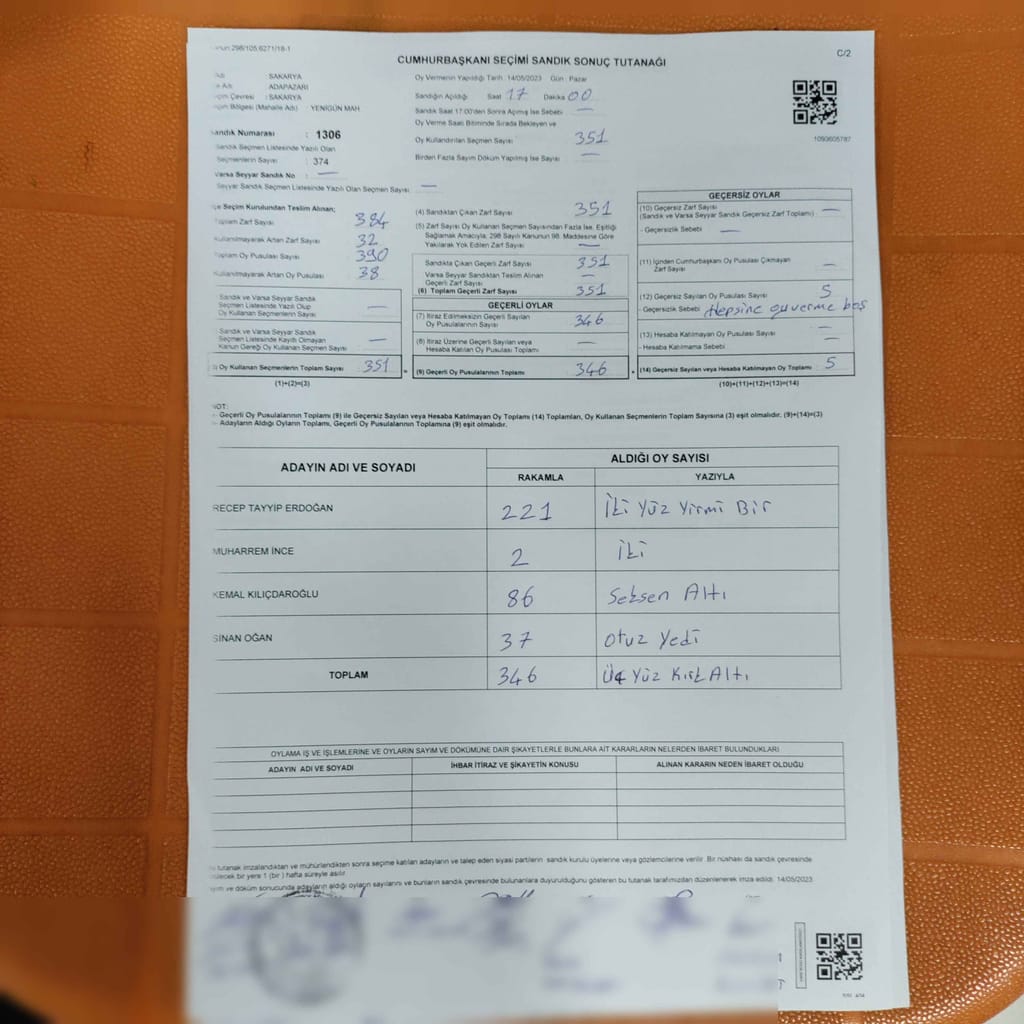 298/105,6271/18-1
C/2
CUMHURBAŞKANI SEÇİMİ SANDIK SONUÇ TUTANAĞI
SAKARYA
ADAPAZARI
SAKARYA
Bölgesi (Mahalle Adı) : YENİGÜN MAH
Sandık Numarası : 1306
Sandık Seçmen Listesinde Yazılı Olan
Seçmenlerin Sayısı : 374
Varsa Seyyar Sandık No : —
Seyyar Sandık Seçmen Listesinde Yazılı Olan Seçmen Sayısı —
Oy Vermenin Yapıldığı Tarih : 14/05/2023 Gün : Pazar
Sandığın Açıldığı Saat 17 Dakika 00
Sandık Saat 17:00'den Sonra Açılmış İse Sebebi : —
Oy Verme Saati Bitiminde Sırada Bekleyen ve
Oy Kullandırılan Seçmen Sayısı 351
Birden Fazla Sayım Döküm Yapılmış İse Sayısı —
1093605787
Seçim Kurulundan Teslim Alınan;
Toplam Zarf Sayısı 384
Kullanılmayarak Artan Zarf Sayısı 32
Toplam Oy Pusulası Sayısı 390
Kullanılmayarak Artan Oy Pusulası 38
Sandık ve Varsa Seyyar Sandık
Seçmen Listesinde Yazılı Olup
Oy Kullanan Seçmenlerin Sayısı —
Sandık ve Varsa Seyyar Sandık
Seçmen Listesinde Kayıtlı Olmayan
Kanun Gereği Oy Kullanan Seçmen Sayısı —
Oy Kullanan Seçmenlerin Toplam Sayısı 351
(1)+(2)=(3)
(4) Sandıktan Çıkan Zarf Sayısı 351
(5) Zarf Sayısı Oy Kullanan Seçmen Sayısından Fazla İse, Eşitliği
Sağlamak Amacıyla, 298 Sayılı Kanunun 98. Maddesine Göre
Yakılarak Yok Edilen Zarf Sayısı —
Sandıkta Çıkan Geçerli Zarf Sayısı 351
Varsa Seyyar Sandıktan Teslim Alınan
Geçerli Zarf Sayısı —
(6) Toplam Geçerli Zarf Sayısı 351
GEÇERLİ OYLAR
(7) İtiraz Edilmeksizin Geçerli Sayılan
Oy Pusulalarının Sayısı 346
(8) İtiraz Üzerine Geçerli Sayılan veya
Hesaba Katılan Oy Pusulası Toplamı —
(9) Geçerli Oy Pusulalarının Toplamı 346
GEÇERSİZ OYLAR
(10) Geçersiz Zarf Sayısı
(Sandık ve Varsa Seyyar Sandık Geçersiz Zarf Toplamı) —
- Geçersizlik Sebebi —
(11) İçinden Cumhurbaşkanı Oy Pusulası Çıkmayan
Zarf Sayısı —
(12) Geçersiz Sayılan Oy Pusulası Sayısı 5
- Geçersizlik Sebebi Hepsine
(13) Hesaba Katılmayan Oy Pusulası Sayısı —
- Hesaba Katılmama Sebebi —
(14) Geçersiz Sayılan veya Hesaba Katılmayan Oy Toplamı 5
(10)+(11)+(12)+(13)=(14)
NOT:
- Geçerli Oy Pusulalarının Toplamı (9) ile Geçersiz Sayılan veya Hesaba Katılmayan Oy Toplamı (14) Toplamları, Oy Kullanan Seçmenlerin Toplam Sayısına (3) eşit olmalıdır. (9)+(14)=(3)
- Adayların Aldığı Oyların Toplamı, Geçerli Oy Pusulalarının Toplamına (9) eşit olmalıdır.
ADAYIN ADI VE SOYADI ALDIĞI OY SAYISI
RAKAMLA YAZIYLA
RECEP TAYYİP ERDOĞAN 221 İki Yüz Yirmi Bir
MUHARREM İNCE 2 İki
KEMAL KILIÇDAROĞLU 86 Seksen Altı
SİNAN OĞAN 37 Otuz Yedi
TOPLAM 346 Üç Yüz Kırk Altı
OYLAMA İŞ VE İŞLEMLERİNE VE OYLARIN SAYIM VE DÖKÜMÜNE DAİR ŞİKAYETLERLE BUNLARA AİT KARARLARIN NELERDEN İBARET BULUNDUKLARI
ADAYIN ADI VE SOYADI İHBAR İTİRAZ VE ŞİKAYETİN KONUSU ALINAN KARARIN NEDEN İBARET OLDUĞU
tutanak imzalandıktan ve mühürlendikten sonra seçime katılan adayların ve talep eden siyasi partilerin sandık kurulu üyelerine veya gözlemcilerine verilir. Bir nüshası da sandık çevresinde
bir yere 1 (bir) hafta süreyle asılır.
ve döküm sonucunda adayların aldığı oyların sayılarını ve bunların sandık çevresinde bulunanlara duyurulduğunu gösteren bu tutanak tarafımızdan düzenlenerek imza edildi. 14/05/2023